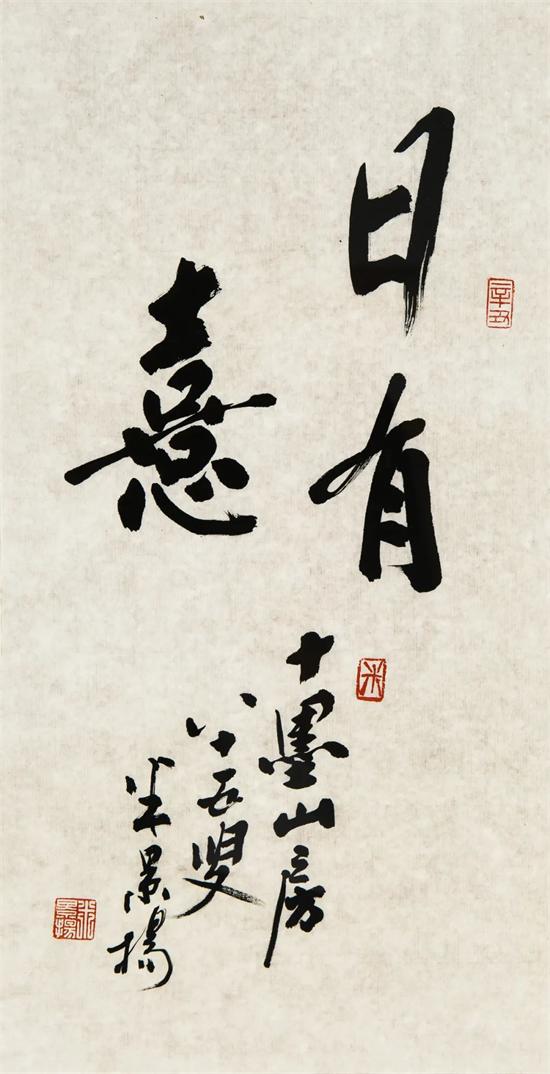 日有
憙
十墨山房
八十五叟
米景揚
辛丑
米
米景揚